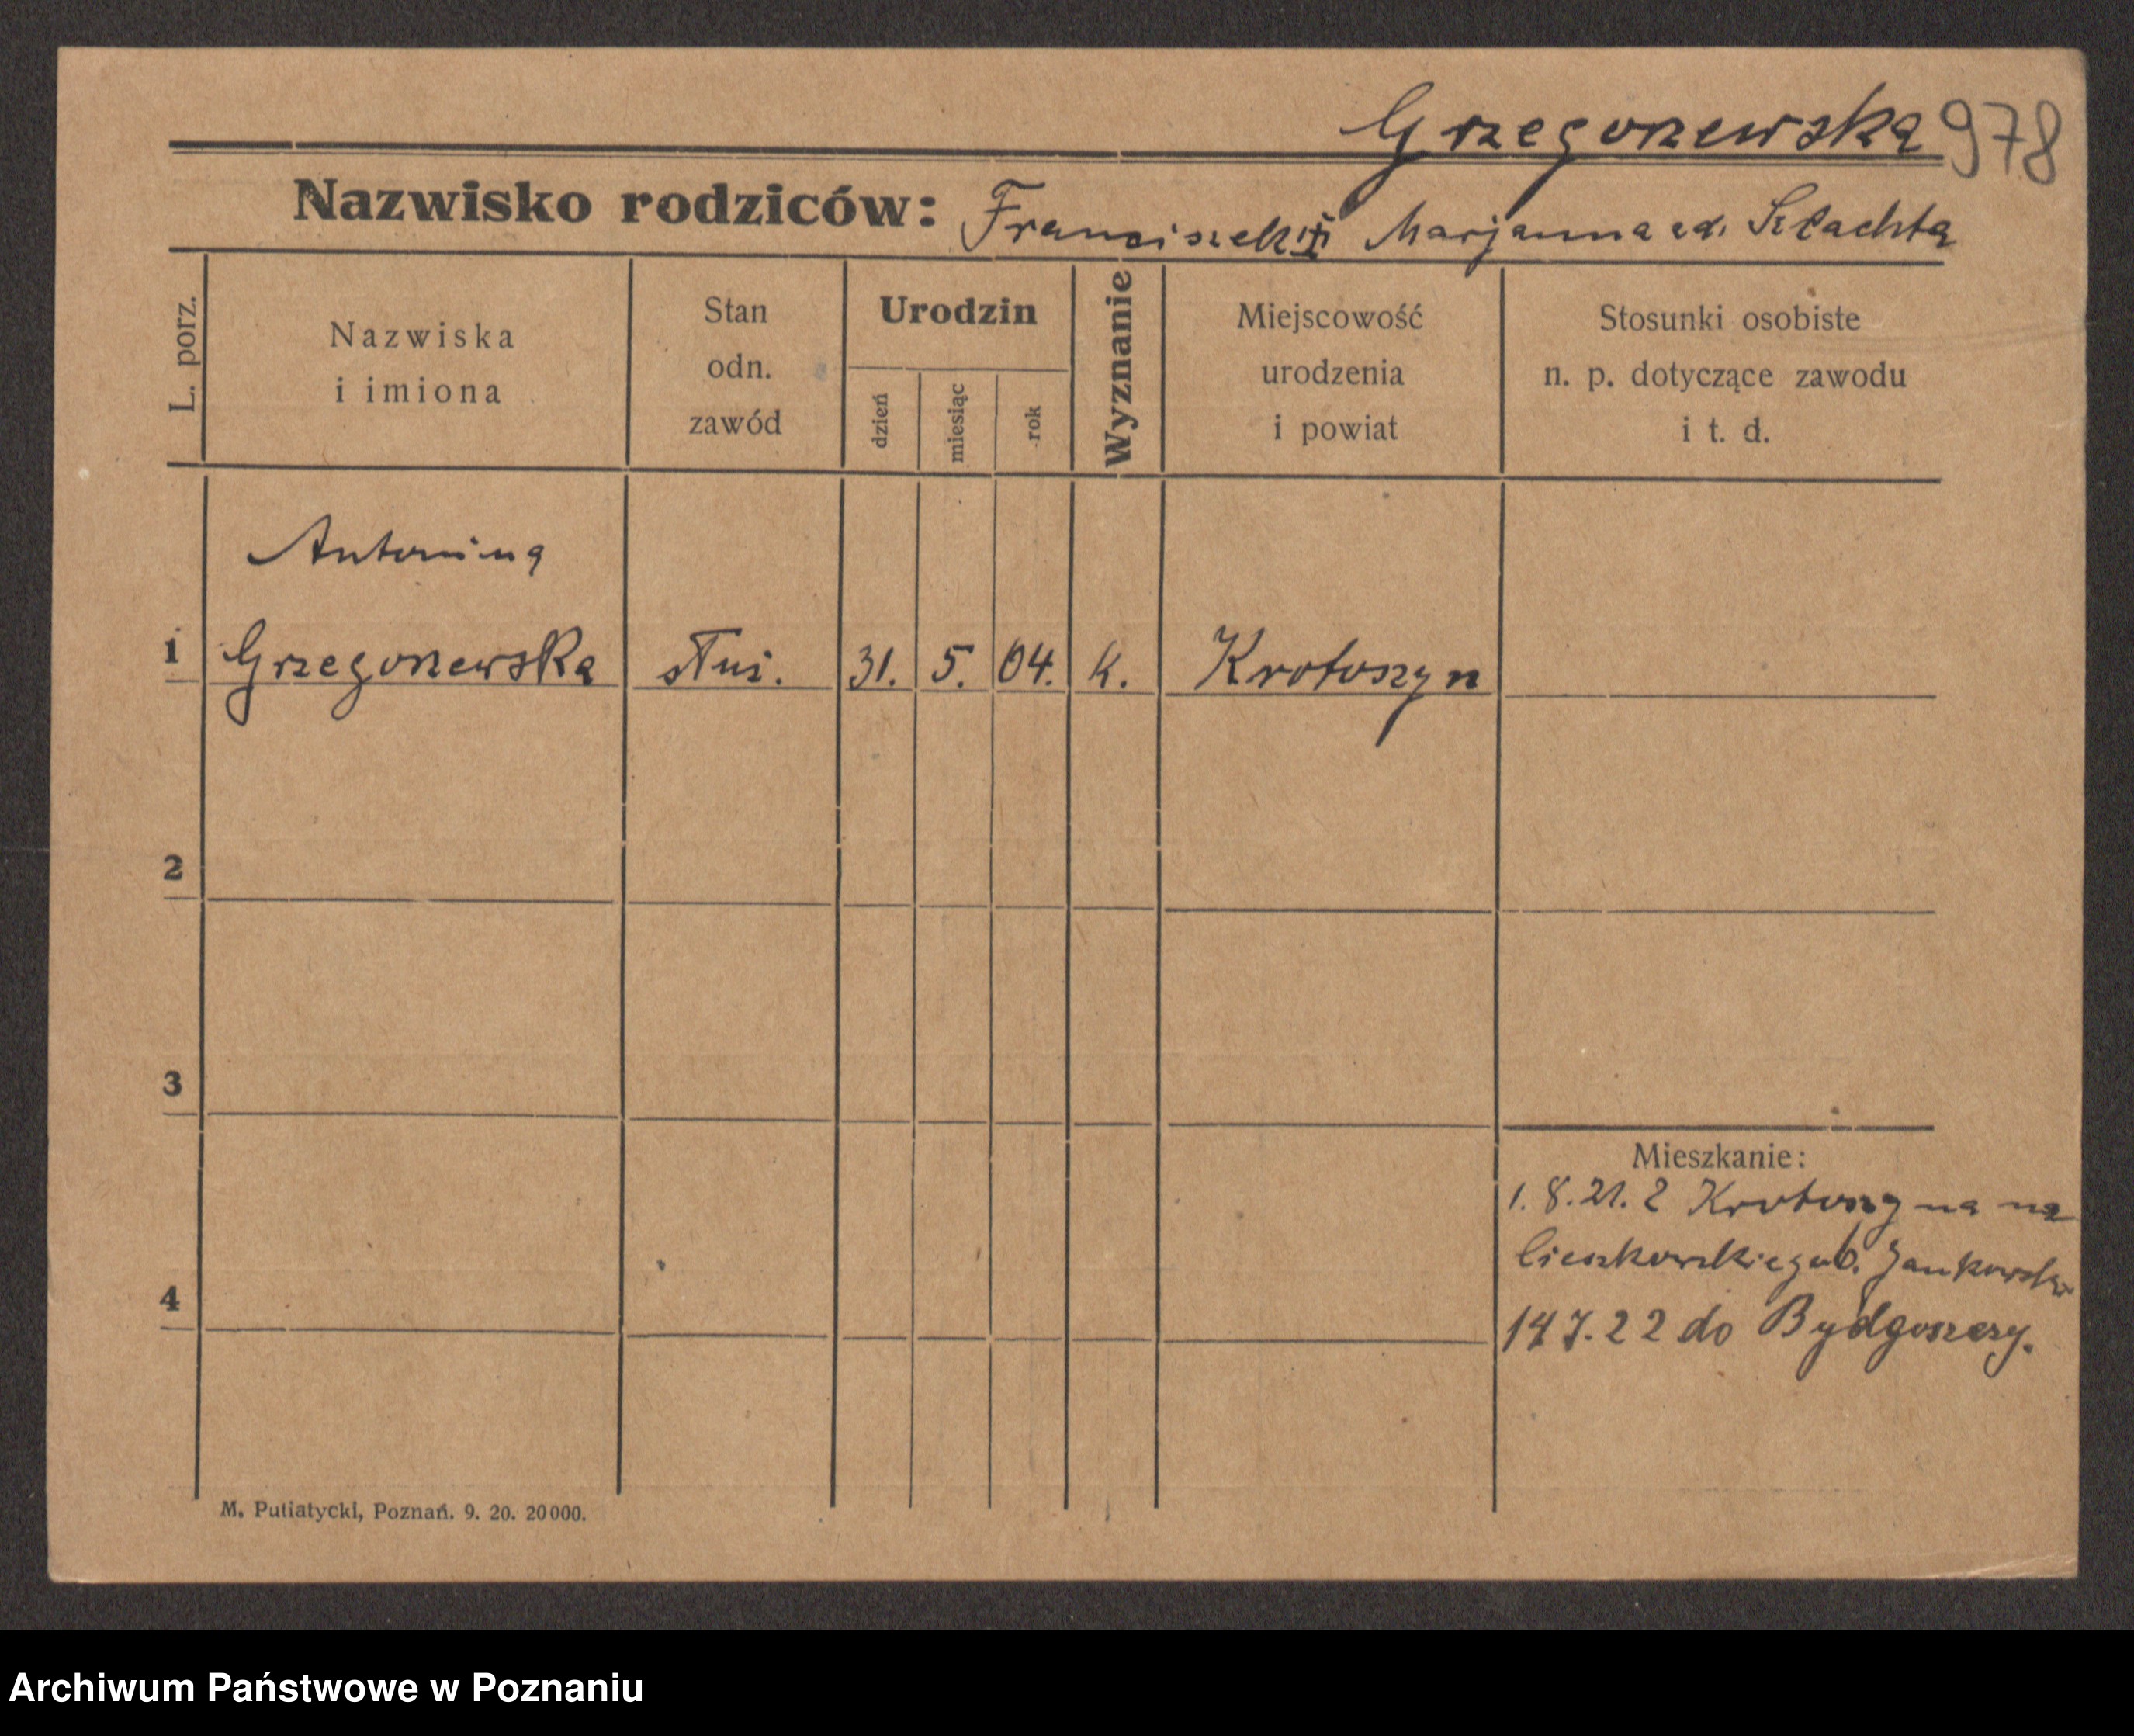 Grzegorzewska 978
Nazwisko rodziców: Franciszek Marjanna zd. Szlachta
L. porz.
Nazwiska
i imiona
Stan
odn.
zawód
Urodzin
dzień
miesiąc
rok
Wyznanie
Miejscowość
urodzenia
i powiat
Stosunki osobiste
n. p. dotyczące zawodu
i t. d.
Antonina
1 Grzegorzewska służ. 31. 5. 04. k. Krotoszyn
2
3
Mieszkanie:
1. 8. 21. z Krotoszyna na
Cieszkowskiego 6. Jankowska
4
14 7. 22 do Bydgoszczy.
M. Putiatycki, Poznań. 9. 20. 20000.
Archiwum Państwowe w Poznaniu